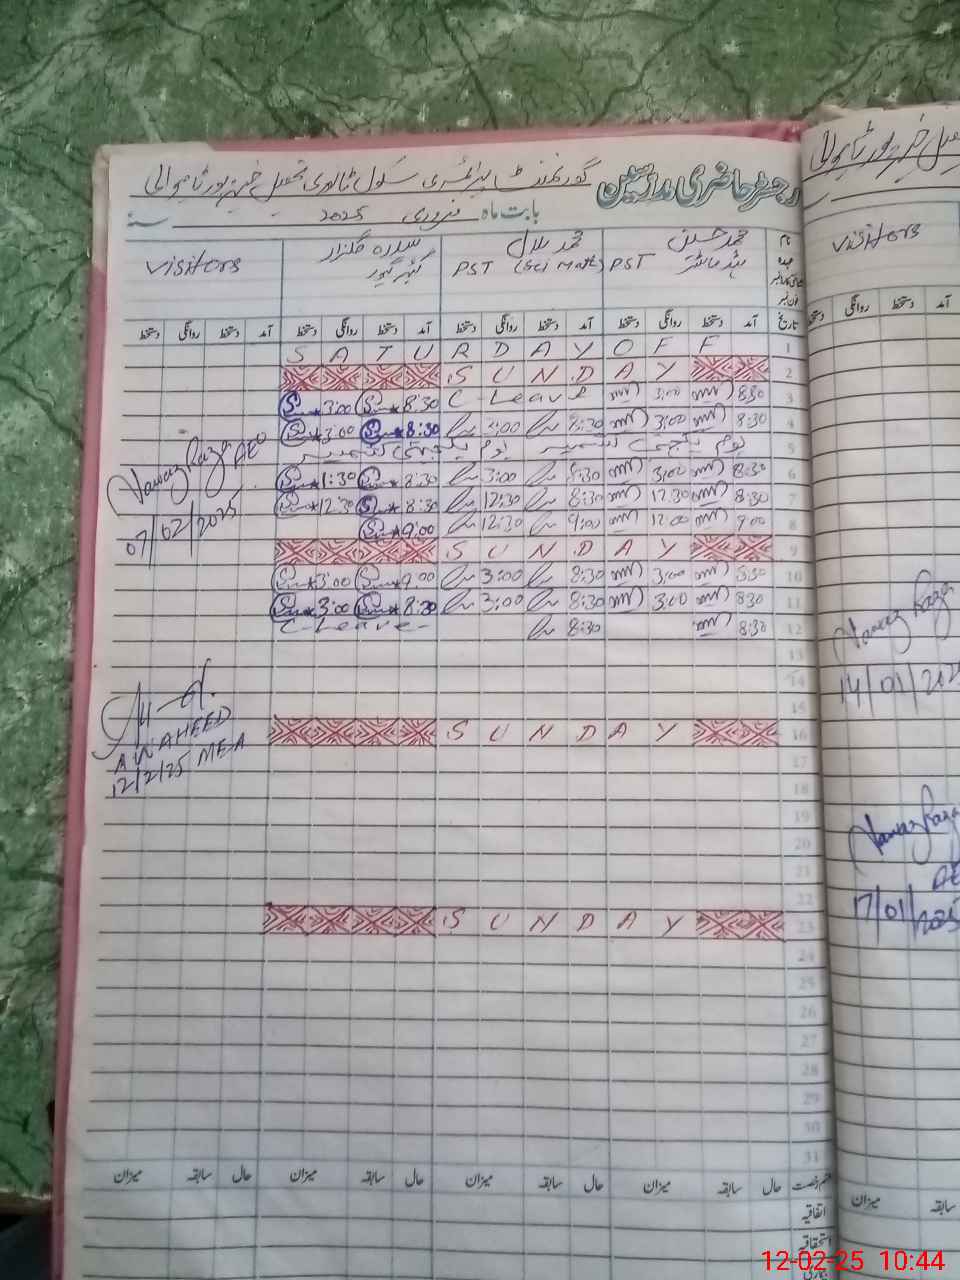 رجسٹر حاضری ملازمین گورنمنٹ پرائمری سکول
بابت ماہ فروری 2025 سنہ
نام
عہدہ
محمد حسین
ہیڈ ماسٹر PST
محمد بلال
PST (Sci Math)
سدرہ گلزار
Visitors
تاریخ آمد دستخط روانگی دستخط آمد دستخط روانگی دستخط آمد دستخط روانگی دستخط آمد دستخط روانگی دستخط
SATURDAY OFF 1
SUNDAY 2
3:00 8:30 C-Leave 3:00 8:30 3
3:00 8:30 3:00 8:30 3:00 8:30 4
یوم یکجہتی کشمیر یوم یکجہتی کشمیر 5
1:30 8:30 3:00 8:30 3:00 8:30 6
12:30 8:30 12:30 8:30 12:30 8:30 7
9:00 12:30 9:00 12:00 9:00 8
SUNDAY 9
3:00 9:00 3:00 8:30 3:00 8:30 10
3:00 8:30 3:00 8:30 3:00 8:30 11
C-Leave- 8:30 8:30 12
13
14
15
SUNDAY 16
17
18
19
20
21
22
SUNDAY 23
24
25
26
27
28
29
30
31
Nawaz Raza AEO
07/02/2025
A WAHEED
12/2/25 MEA
قسم رخصت حال سابقہ میزان حال سابقہ میزان حال سابقہ میزان حال سابقہ میزان
اتفاقیہ
استحقاقیہ
بیماری
Visitors
آمد دستخط روانگی دستخط
Nawaz Raza
14/01/202
Nawaz Raza
AE
17/01/2025
سابقہ میزان
12-02-25 10:44